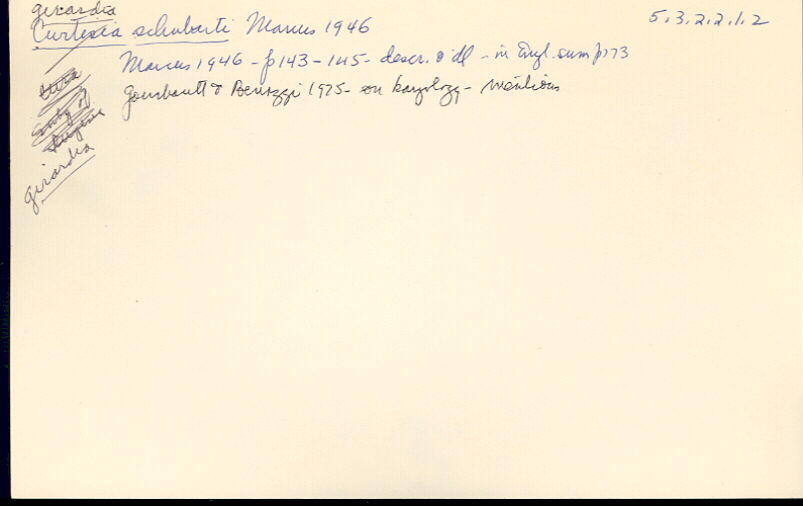 girardia
Curtisia schubarti Marcus 1946 5.3.2.2.1.2
Marcus 1946 - p143-145- descr. o'dl - in Engl. sum p173
Gourbault & Benazzi 1975- on karyology - mentions
girardia